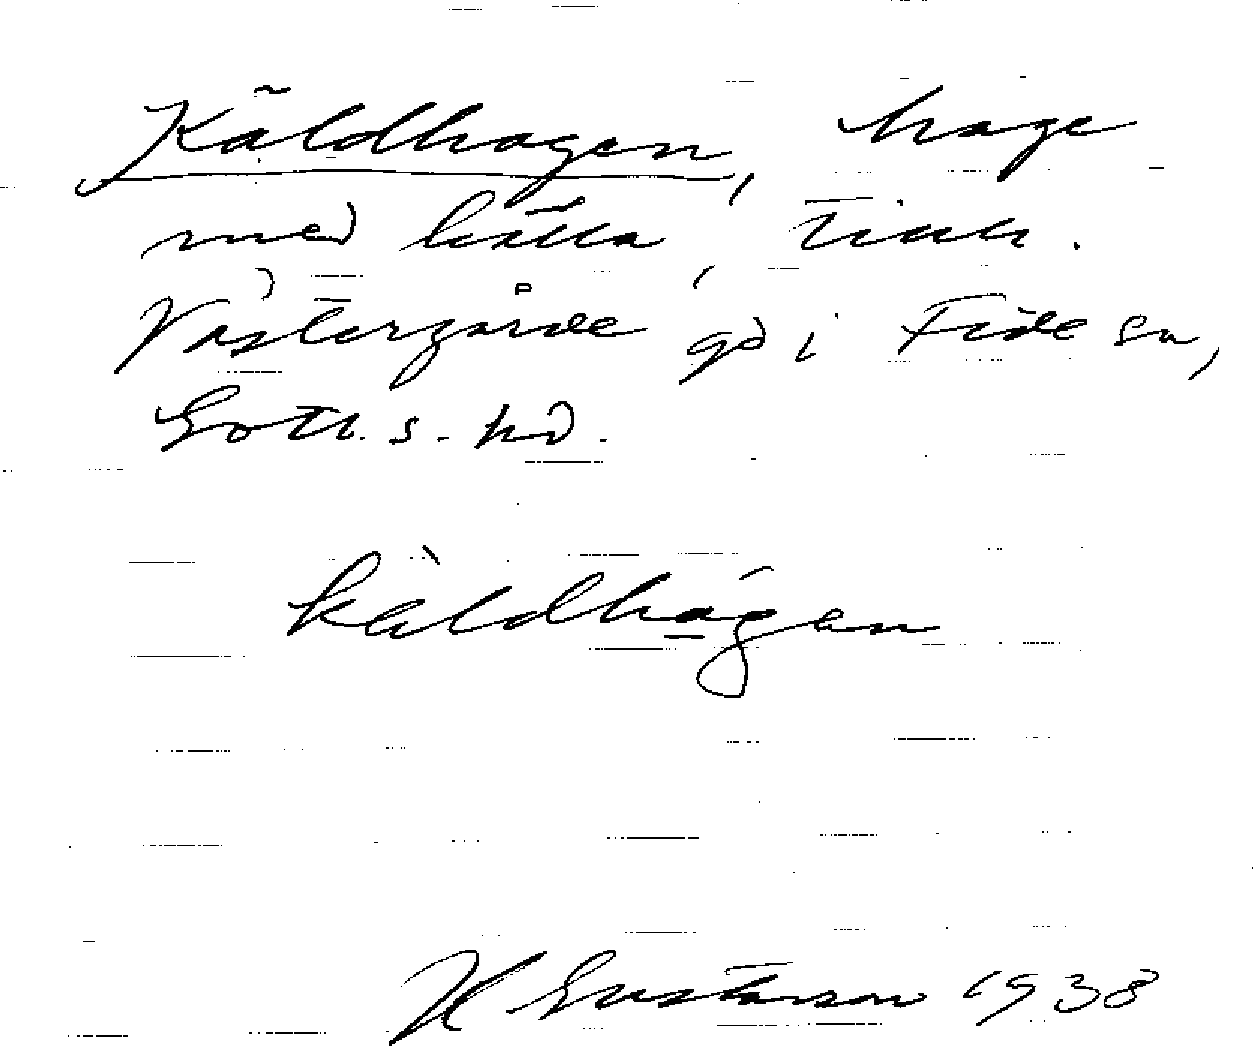 Käldhagen, hage
med källa, tillh.
Västergårde gd i Fide sn,
Gotl. s. hd.
käldhagen
H Gustavson 1938